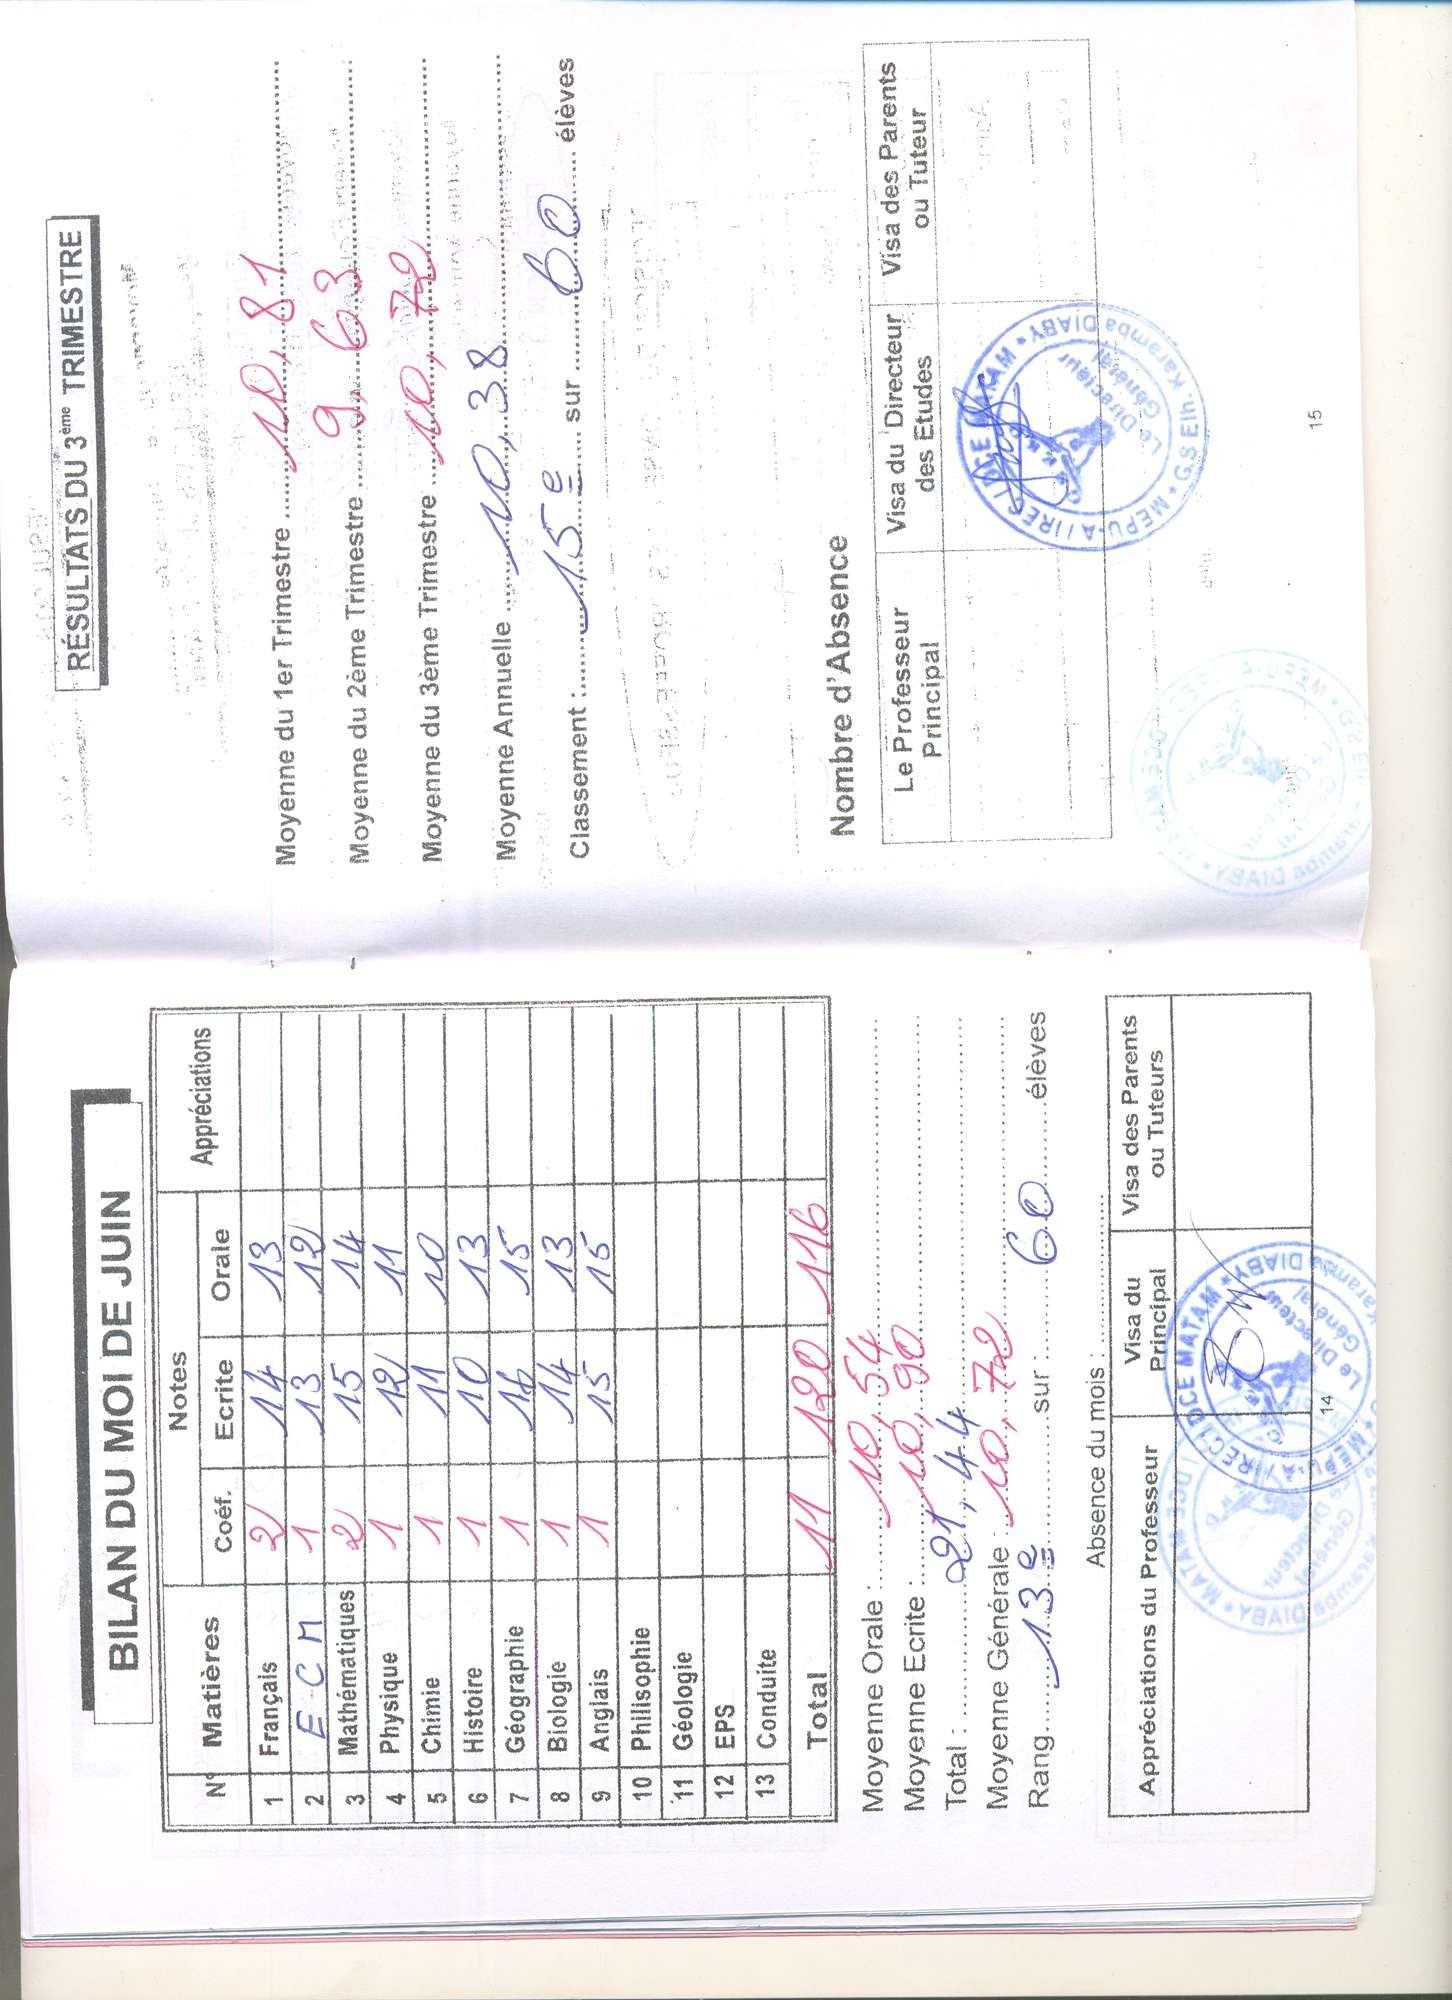 BILAN DU MOI DE JUIN
N° Matières Notes Appréciations
Coéf. Ecrite Orale
1 Français 2 14 13
2 E C M 1 13 12
3 Mathématiques 2 15 14
4 Physique 1 12 11
5 Chimie 1 11 10
6 Histoire 1 10 13
7 Géographie 1 16 15
8 Biologie 1 14 13
9 Anglais 1 15 15
10 Philisophie
11 Géologie
12 EPS
13 Conduite
Total 11 120 116
Moyenne Orale : 10,54
Moyenne Ecrite : 10,90
Total : 21,44
Moyenne Générale : 10,72
Rang 13e sur : 60 élèves
Absence du mois :
Appréciations du Professeur Visa du Principal Visa des Parents ou Tuteurs
MEPU-A / IREC / DCE MATAM
Karamba DIABY
Le Directeur Général
14
RÉSULTATS DU 3ème TRIMESTRE
Moyenne du 1er Trimestre 10,81
Moyenne du 2ème Trimestre 9,63
Moyenne du 3ème Trimestre 10,72
Moyenne Annuelle 10,38
Classement : 15e sur 60 élèves
Nombre d'Absence
Le Professeur Principal Visa du Directeur des Etudes Visa des Parents ou Tuteur
MEPU-A / IREC / DCE MATAM
G.S Elh. Karamba DIABY
Le Directeur Général
15